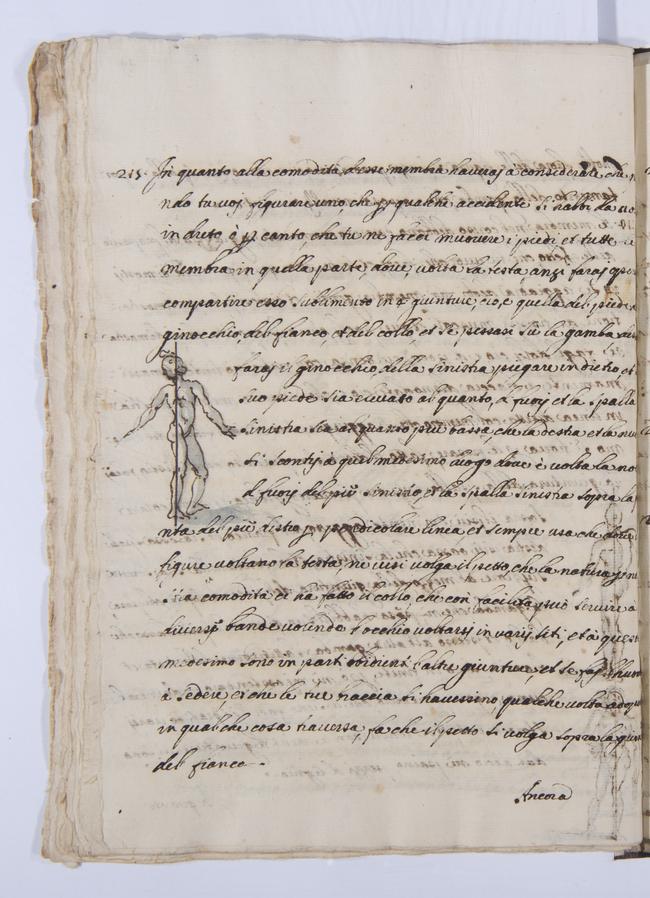 215. In quanto alla comodità d'esse membra haverai a considerare, che
ndo tu voi figurare uno, che p qualche accidente si habbi da
in dreto ò p canto, che tu ne facci muovere i piedi et tutte
membra in quella parte, dove, volta la testa, anzi farai
compartire esso in 4 giunture, cioè quella del piede
ginocchio del fianco et del collo, et se possasi sù la gamba
farai il ginocchio della sinistra piegare in dietro et
suo piede sia elevato alquanto, di fuori et la spalla
sinistra sia alquanto più bassa, che la destra et la
si scontri à quel medesimo luogo dove è volta la
di fuori del piè sinistro, et la spalla sinistra sopra la
nta del piè destro p pendicolare linea et sempre usa che dove
figure voltano la testa, ne ivi volga il petto, che la natura p
comodità ci ha fatto il collo, che con facilità può servire a
diverse bande volendo l'occhio voltarsi in varij siti, et a
medesimo sono in parti obidienti l'altre giunture, et se fai l'
a sedere, et che le sue braccia si havessino, qualche volta
in qualche cosa traversa, fa che il petto si volga sopra la
del fianco.
Ancora